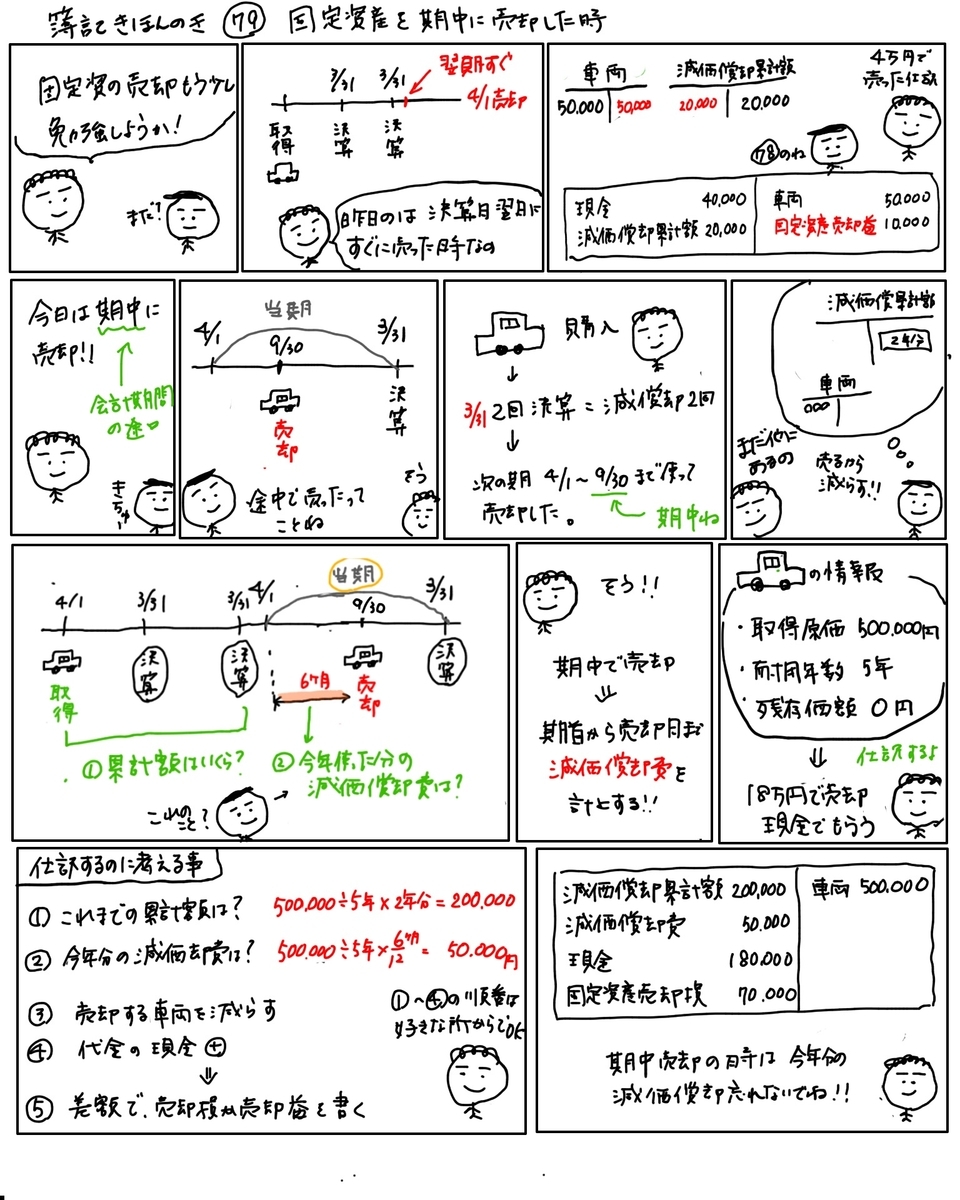 簿記きほんのき 79 固定資産を期中に売却した時
固定資の売却もう少し
勉強しようか!
まだ?
3/31 3/31
翌期すぐ
4/1売却
取得 決算 決算
昨日のは 決算日翌日に
すぐに売った時なの
車両 減価償却累計額
50.000 50,000 20,000 20,000
4万円で
売った仕訳
78のね
現金 40,000 車両 50,000
減価償却累計額 20,000 固定資産売却益 10,000
今日は期中に
売却!!
会計期間
の途中
きちゅー
当期
4/1 9/30 3/31
売却
決算
途中で売ったって
ことね
そう
購入
3/31 2回決算=減価償却2回
次の期 4/1~9/30まで使って
売却した。
期中ね
減価償却累計額
2年分
車両
000
まだ他に
あるの
売るから
減らす!!
当期
4/1 3/31 3/31 4/1 9/30 3/31
取得 決算 決算 6ヶ月 売却 決算
①累計額はいくら?
②今年使った分の
減価償却費は?
これの
こと?
そう!!
期中で売却
⇓
期首から売却月まで
減価償却費を
計上する!!
の情報
・取得原価 500.000円
・耐用年数 5年
・残存価額 0円
仕訳するよ
18万円で売却
現金でもらう
仕訳するのに考える事
① これまでの累計額は? 500.000÷5年×2年分=200,000
② 今年分の減価却費は? 500.000÷5年×6ヶ月/12= 50.000円
③ 売却する車両を減らす
④ 代金の現金 ⊕
⇓
⑤ 差額で、売却損か売却益を書く
①~④の順番は
好きな所からでOK
減価償却累計額 200,000 車両 500,000
減価償却費 50.000
現金 180.000
固定資産売却損 70.000
期中売却の時は 今年分の
減価償却忘れないでね!!